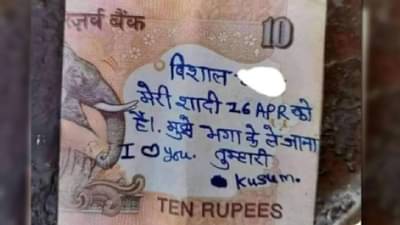 रिज़र्व बैंक
10
विशाल
मेरी शादी 26 APR को
है। मुझे भगा के ले जाना
I ♡ You. तुम्हारी
Kusum.
TEN RUPEES